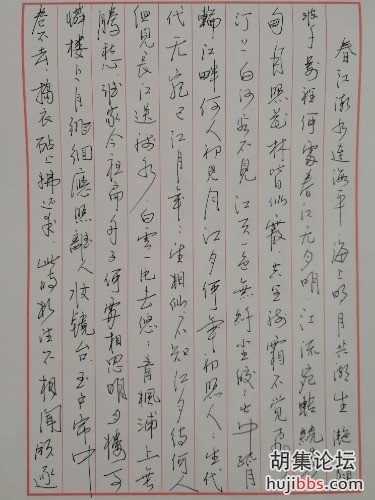 春江潮水连海平 海上明月共潮生 滟
波千万里何处春江无月明 江流宛转绕
甸 月照花林皆似霰 空里流霜不觉飞
汀上白沙看不见 江天一色無纤尘 皎皎空中孤月
輪 江畔何人初見月 江月何年初照人 人生代
代无窮已 江月年年望相似 不知江月待何人
但见長江送流水 白雲一片去悠悠 青楓浦上不
勝愁 谁家今夜扁舟子 何處相思明月楼 可
憐楼上月徘徊 應照離人妆镜台 玉户帘中
卷不去 捣衣砧上拂还来 此時相望不相闻 願逐
胡集论坛
hujibbs.com